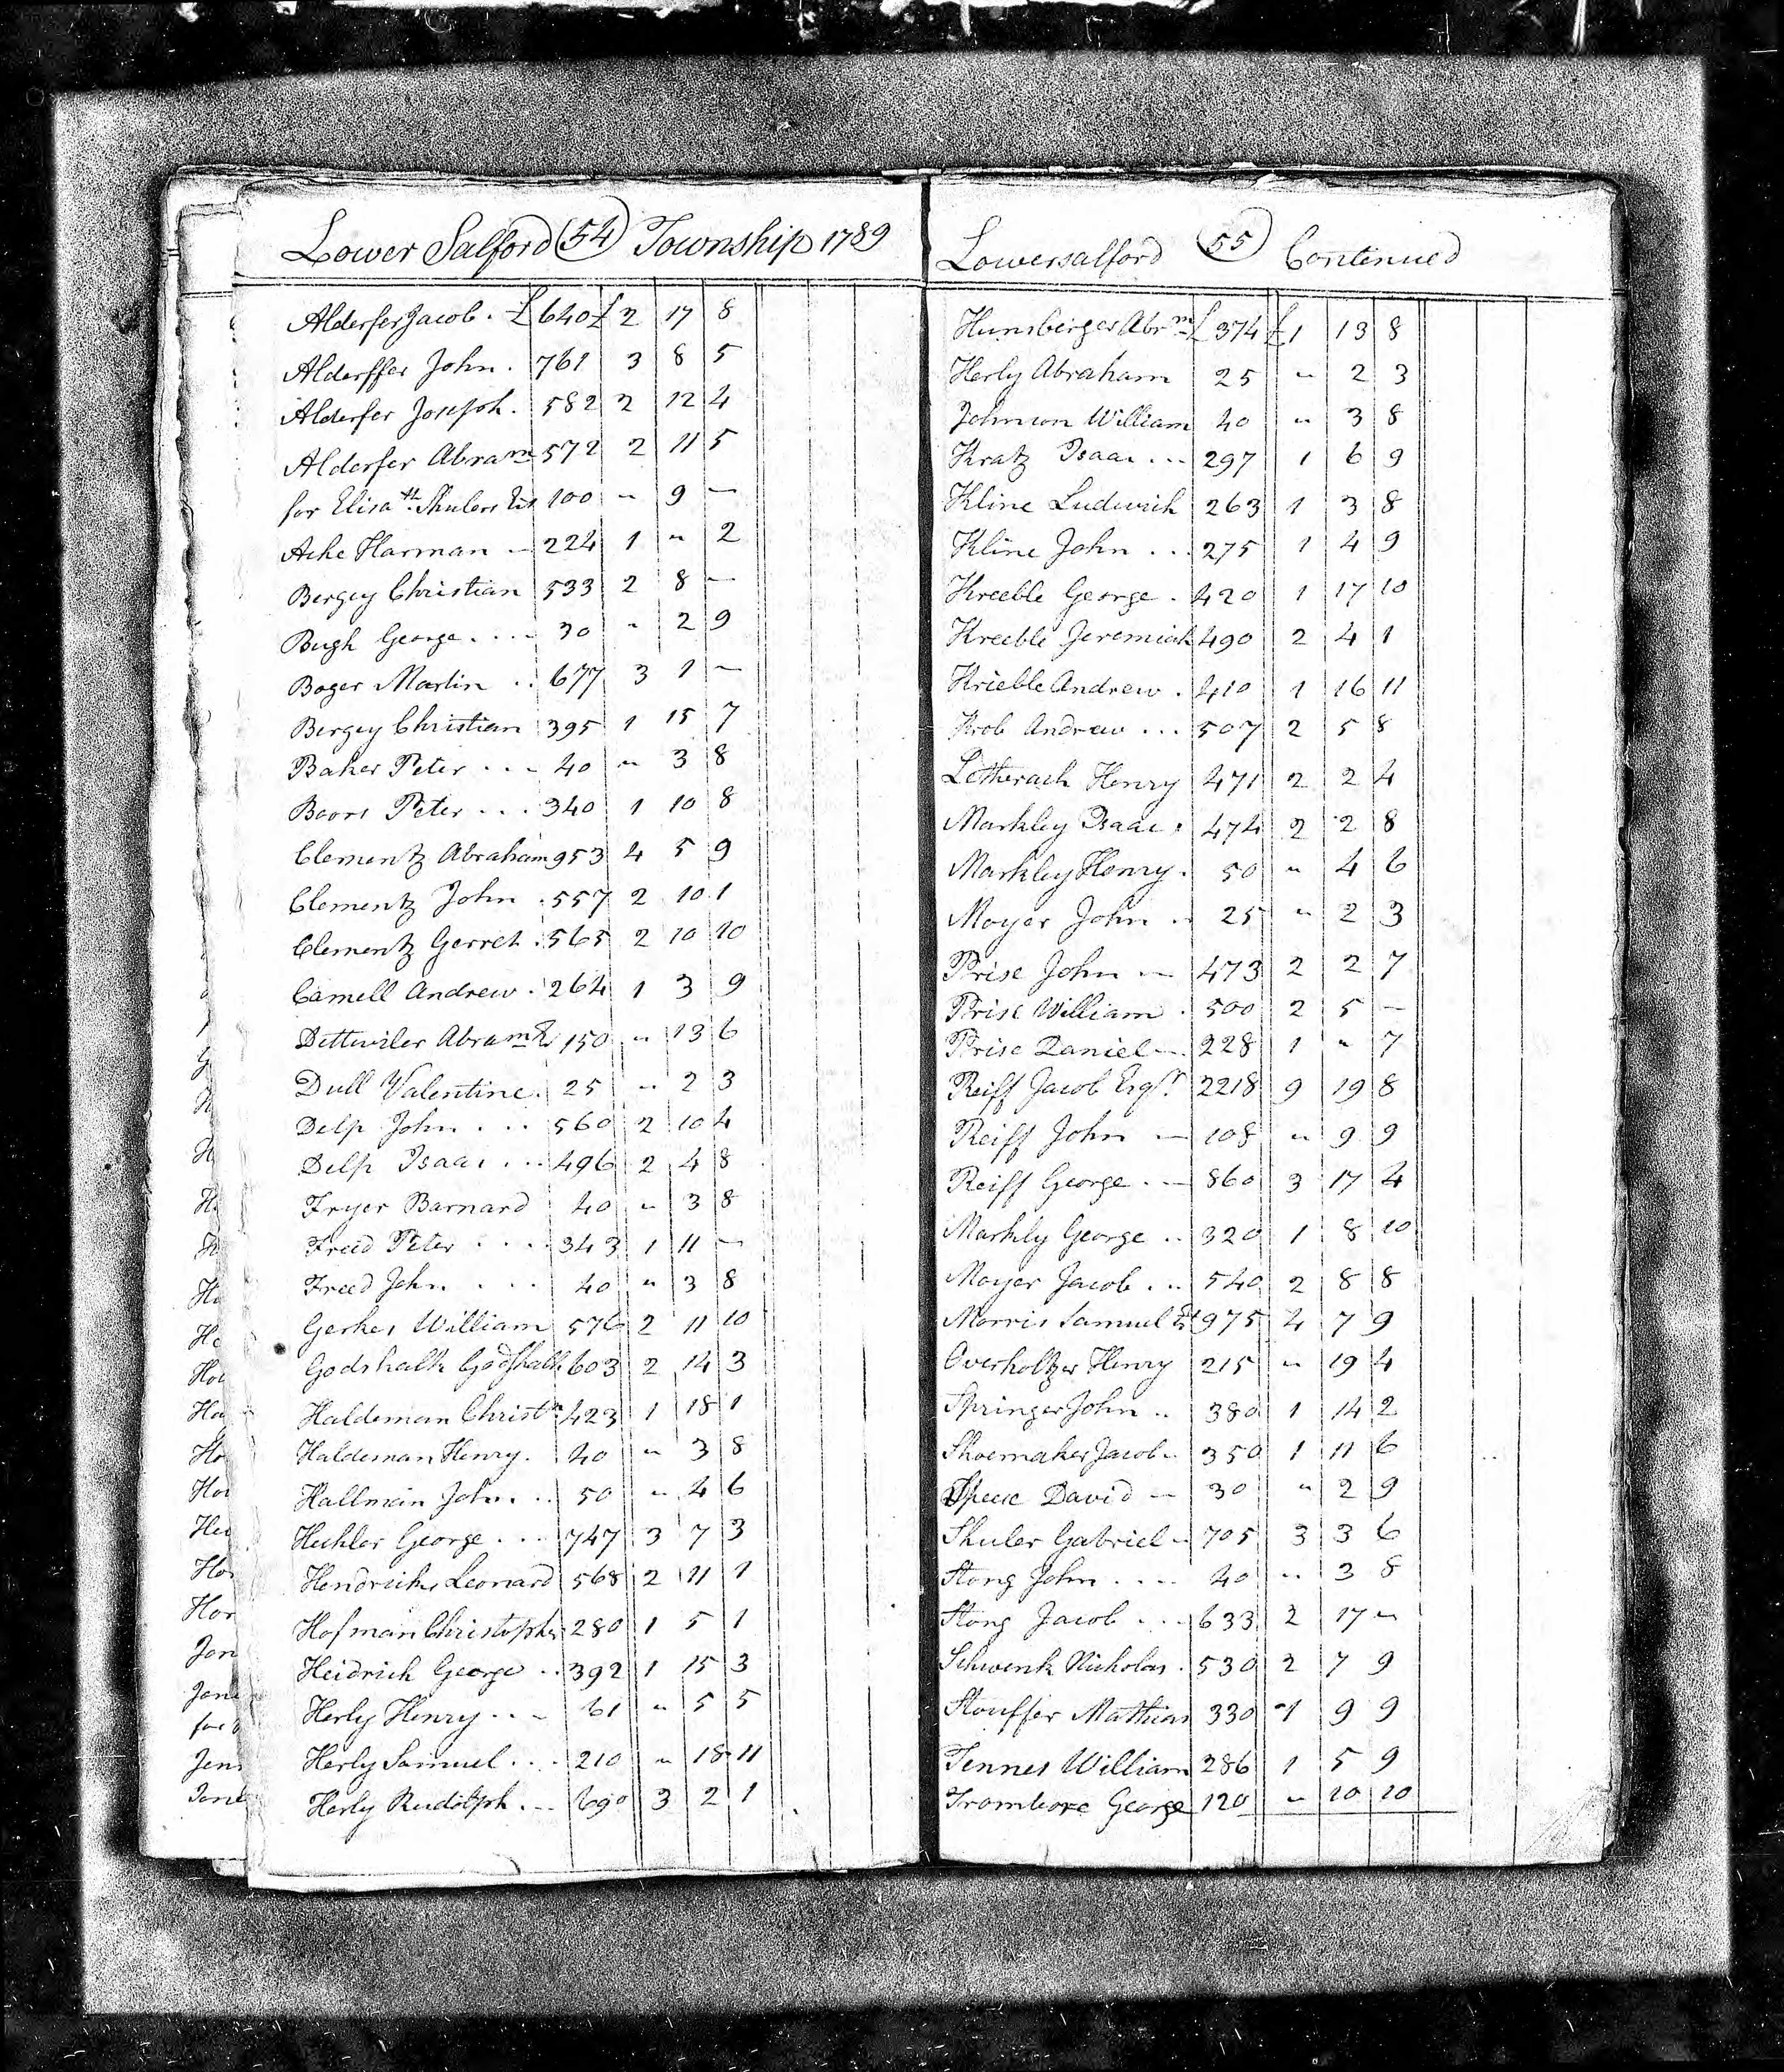 Lower Salford (54) Township 1789
Alderfer Jacob . £ 640 £ 2 17 8
Alderffer John . 761 3 8 5
Alderfer Joseph . 582 2 12 4
Alderfer Abram 572 2 11 5
for Elisath. Shulers Es 100 " 9 —
Ache Harman — 224 1 " 2
Bergey Christian 533 2 8 —
Bugh George . . . . 30 " 2 9
Boger Martin . . 677 3 1 —
Bergey Christian 395 1 15 7
Baker Peter . . . 40 " 3 8
Boors Peter . . . 340 1 10 8
Clementz Abraham 953 4 5 9
Clementz John . 557 2 10 1
Clementz Gerret . 565 2 10 10
Camell Andrew . 264 1 3 9
Dettwiler Abram 150 " 13 6
Dull Valentine . 25 " 2 3
Delp John . . . 560 2 10 4
Delp Isaac . . . 496 2 4 8
Fryer Barnard 40 " 3 8
Freed Peter . . . . 343 1 11 —
Freed John . . . . 40 " 3 8
Gerhes William 576 2 11 10
Godshalk Godshalk 603 2 14 3
Haldeman Christn 423 1 18 1
Haldeman Henry . 40 " 3 8
Hallman John . . . 50 " 4 6
Hechler George . . . 747 3 7 3
Hendricks Leonard 568 2 11 1
Hofman Christopher 280 1 5 1
Heidrich George . . 392 1 15 3
Herly Henry . . — 61 " 5 5
Herly Samuel . . . 210 " 18 11
Herly Rudolph . — 690 3 2 1
Lowersalford (55) Continued
Hunsberger Abrm £ 374 £ 1 13 8
Herly Abraham 25 " 2 3
Johnson William 40 " 3 8
Kratz Isaac . . . 297 1 6 9
Kline Ludwich 263 1 3 8
Kline John . . . 275 1 4 9
Kreeble George . 420 1 17 10
Kreeble Jeremiah 490 2 4 1
Krieble Andrew . 410 1 16 11
Krob Andrew . . . 507 2 5 8
Letherach Henry 471 2 2 4
Markley Isaac . 474 2 2 8
Markley Henry . 50 " 4 6
Moyer John . . 25 " 2 3
Prise John — 473 2 2 7
Prise William . 500 2 5 —
Prise Daniel — 228 1 " 7
Reiff Jacob Esqr. 2218 9 19 8
Reiff John — 108 " 9 9
Reiff George . — 860 3 17 4
Markly George . . 320 1 8 10
Moyer Jacob . . . 540 2 8 8
Morris Samuel Est 975 4 7 9
Overholtzer Henry 215 " 19 4
Springer John . . 380 1 14 2
Shoemaker Jacob . 350 1 11 6
Speece David — 30 " 2 9
Shuler Gabriel — 705 3 3 6
Stong John . . . . 40 " 3 8
Stong Jacob . . . 633 2 17 "
Schwenk Nicholas . 530 2 7 9
Stouffer Mathias 330 1 9 9
Tennes William 286 1 5 9
Trombore George 120 " 10 10